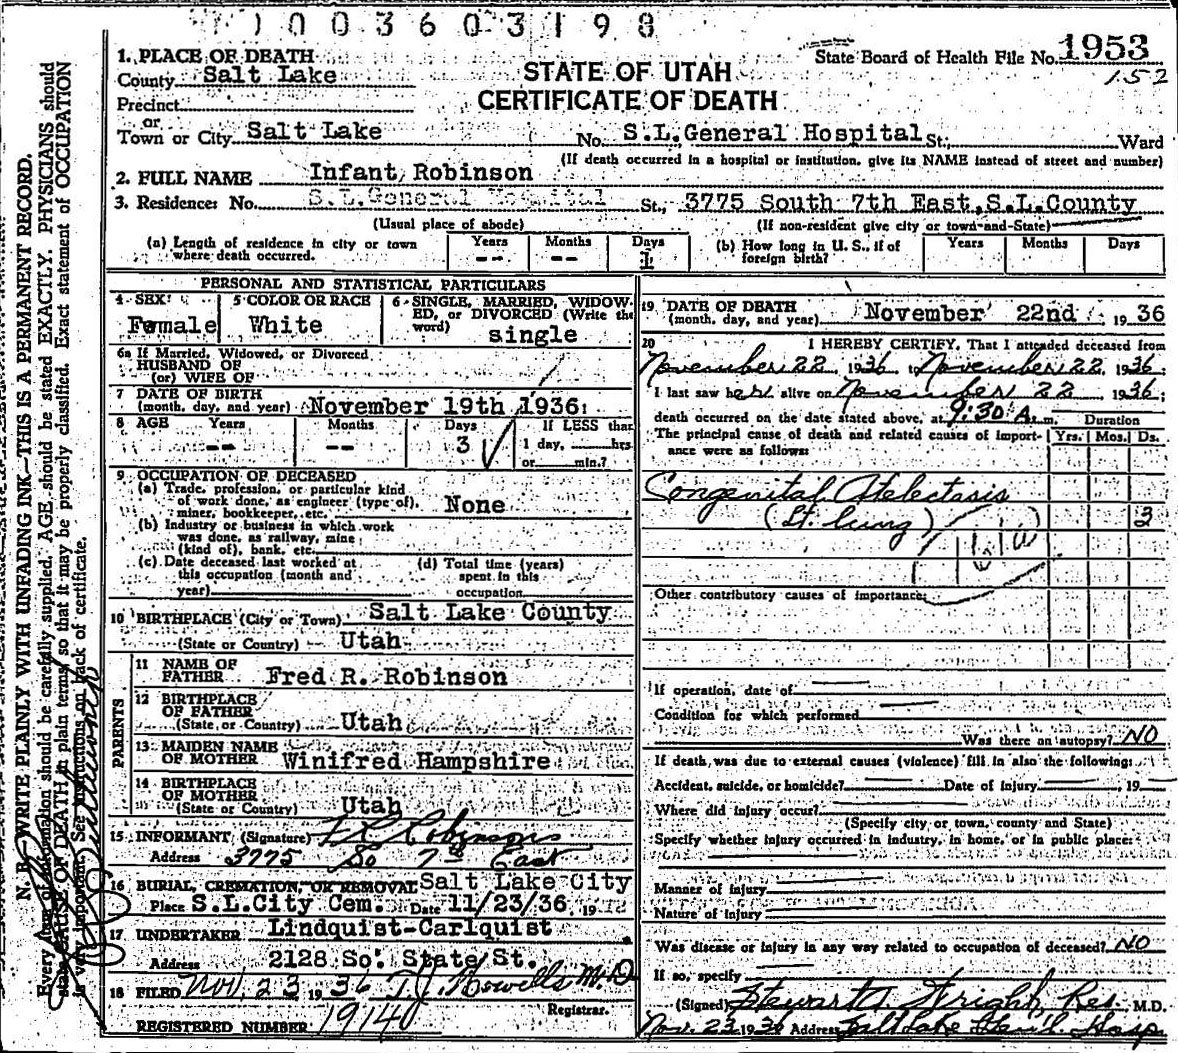 1003603198
State Board of Health File No. 1953
152
1. PLACE OF DEATH
County Salt Lake
STATE OF UTAH
CERTIFICATE OF DEATH
Precinct
or
Town or City Salt Lake No. S.L.General Hospital St., Ward
(If death occurred in a hospital or institution, give its NAME instead of street and number)
2. FULL NAME Infant Robinson
3. Residence: No. S.L.General Hospital St., 3775 South 7th East, S.L.County
(Usual place of abode) (If non-resident give city or town and State)
(a) Length of residence in city or town where death occurred. Years -- Months -- Days 1
(b) How long in U. S., if of foreign birth? Years Months Days
PERSONAL AND STATISTICAL PARTICULARS
4 SEX Female
5 COLOR OR RACE White
6 SINGLE, MARRIED, WIDOWED, or DIVORCED (Write the word) single
6a If Married, Widowed, or Divorced
HUSBAND OF
(or) WIFE OF
7 DATE OF BIRTH
(month, day, and year) November 19th 1936
8 AGE Years -- Months -- Days 3 If LESS than
1 day, hrs.
or min.?
9 OCCUPATION OF DECEASED
(a) Trade, profession, or particular kind
of work done, as engineer (type of),
miner, bookkeeper, etc. None
(b) Industry or business in which work
was done, as railway, mine
(kind of), bank, etc.
(c) Date deceased last worked at
this occupation (month and
year)
(d) Total time (years)
spent in this
occupation
10 BIRTHPLACE (City or Town) Salt Lake County
(State or Country) Utah
PARENTS
11 NAME OF
FATHER Fred R. Robinson
12 BIRTHPLACE
OF FATHER
(State or Country) Utah
13 MAIDEN NAME
OF MOTHER Winifred Hampshire
14 BIRTHPLACE
OF MOTHER
(State or Country) Utah
15 INFORMANT (Signature) F R Robinson
Address 3775 So 7th East
16 BURIAL, CREMATION, OR REMOVAL Salt Lake City
Place S.L.City Cem. Date 11/23/36 19
17 UNDERTAKER Lindquist-Carlquist
Address 2128 So. State St.
18 FILED Nov. 23 1936 T.J. Howells M.D.
Registrar.
REGISTERED NUMBER 19140
19 DATE OF DEATH
(month, day, and year) November 22nd, 1936
20 I HEREBY CERTIFY, That I attended deceased from
November 22, 1936, November 22, 1936;
I last saw her alive on November 22, 1936;
death occurred on the date stated above, at 9:30 A.m. Duration
The principal cause of death and related causes of importance were as follows: Yrs. Mos. Ds.
Congenital Atelectasis
(Lt. lung) 3
Other contributory causes of importance:
If operation, date of
Condition for which performed
Was there an autopsy? NO
If death was due to external causes (violence) fill in also the following:
Accident, suicide, or homicide? Date of injury , 19
Where did injury occur?
(Specify city or town, county and State)
Specify whether injury occurred in industry, in home, or in public place:
Manner of injury
Nature of injury
Was disease or injury in any way related to occupation of deceased? NO
If so, specify
(Signed) Stewart A. Wright, Res. M.D.
Nov. 23 1936 Address Salt Lake Gen'l. Hosp.
N. B. WRITE PLAINLY WITH UNFADING INK—THIS IS A PERMANENT RECORD.
Every item of information should be carefully supplied. AGE should be stated EXACTLY. PHYSICIANS should
state CAUSE OF DEATH in plain terms, so that it may be properly classified. Exact statement of OCCUPATION
is very important. See instructions on back of certificate.